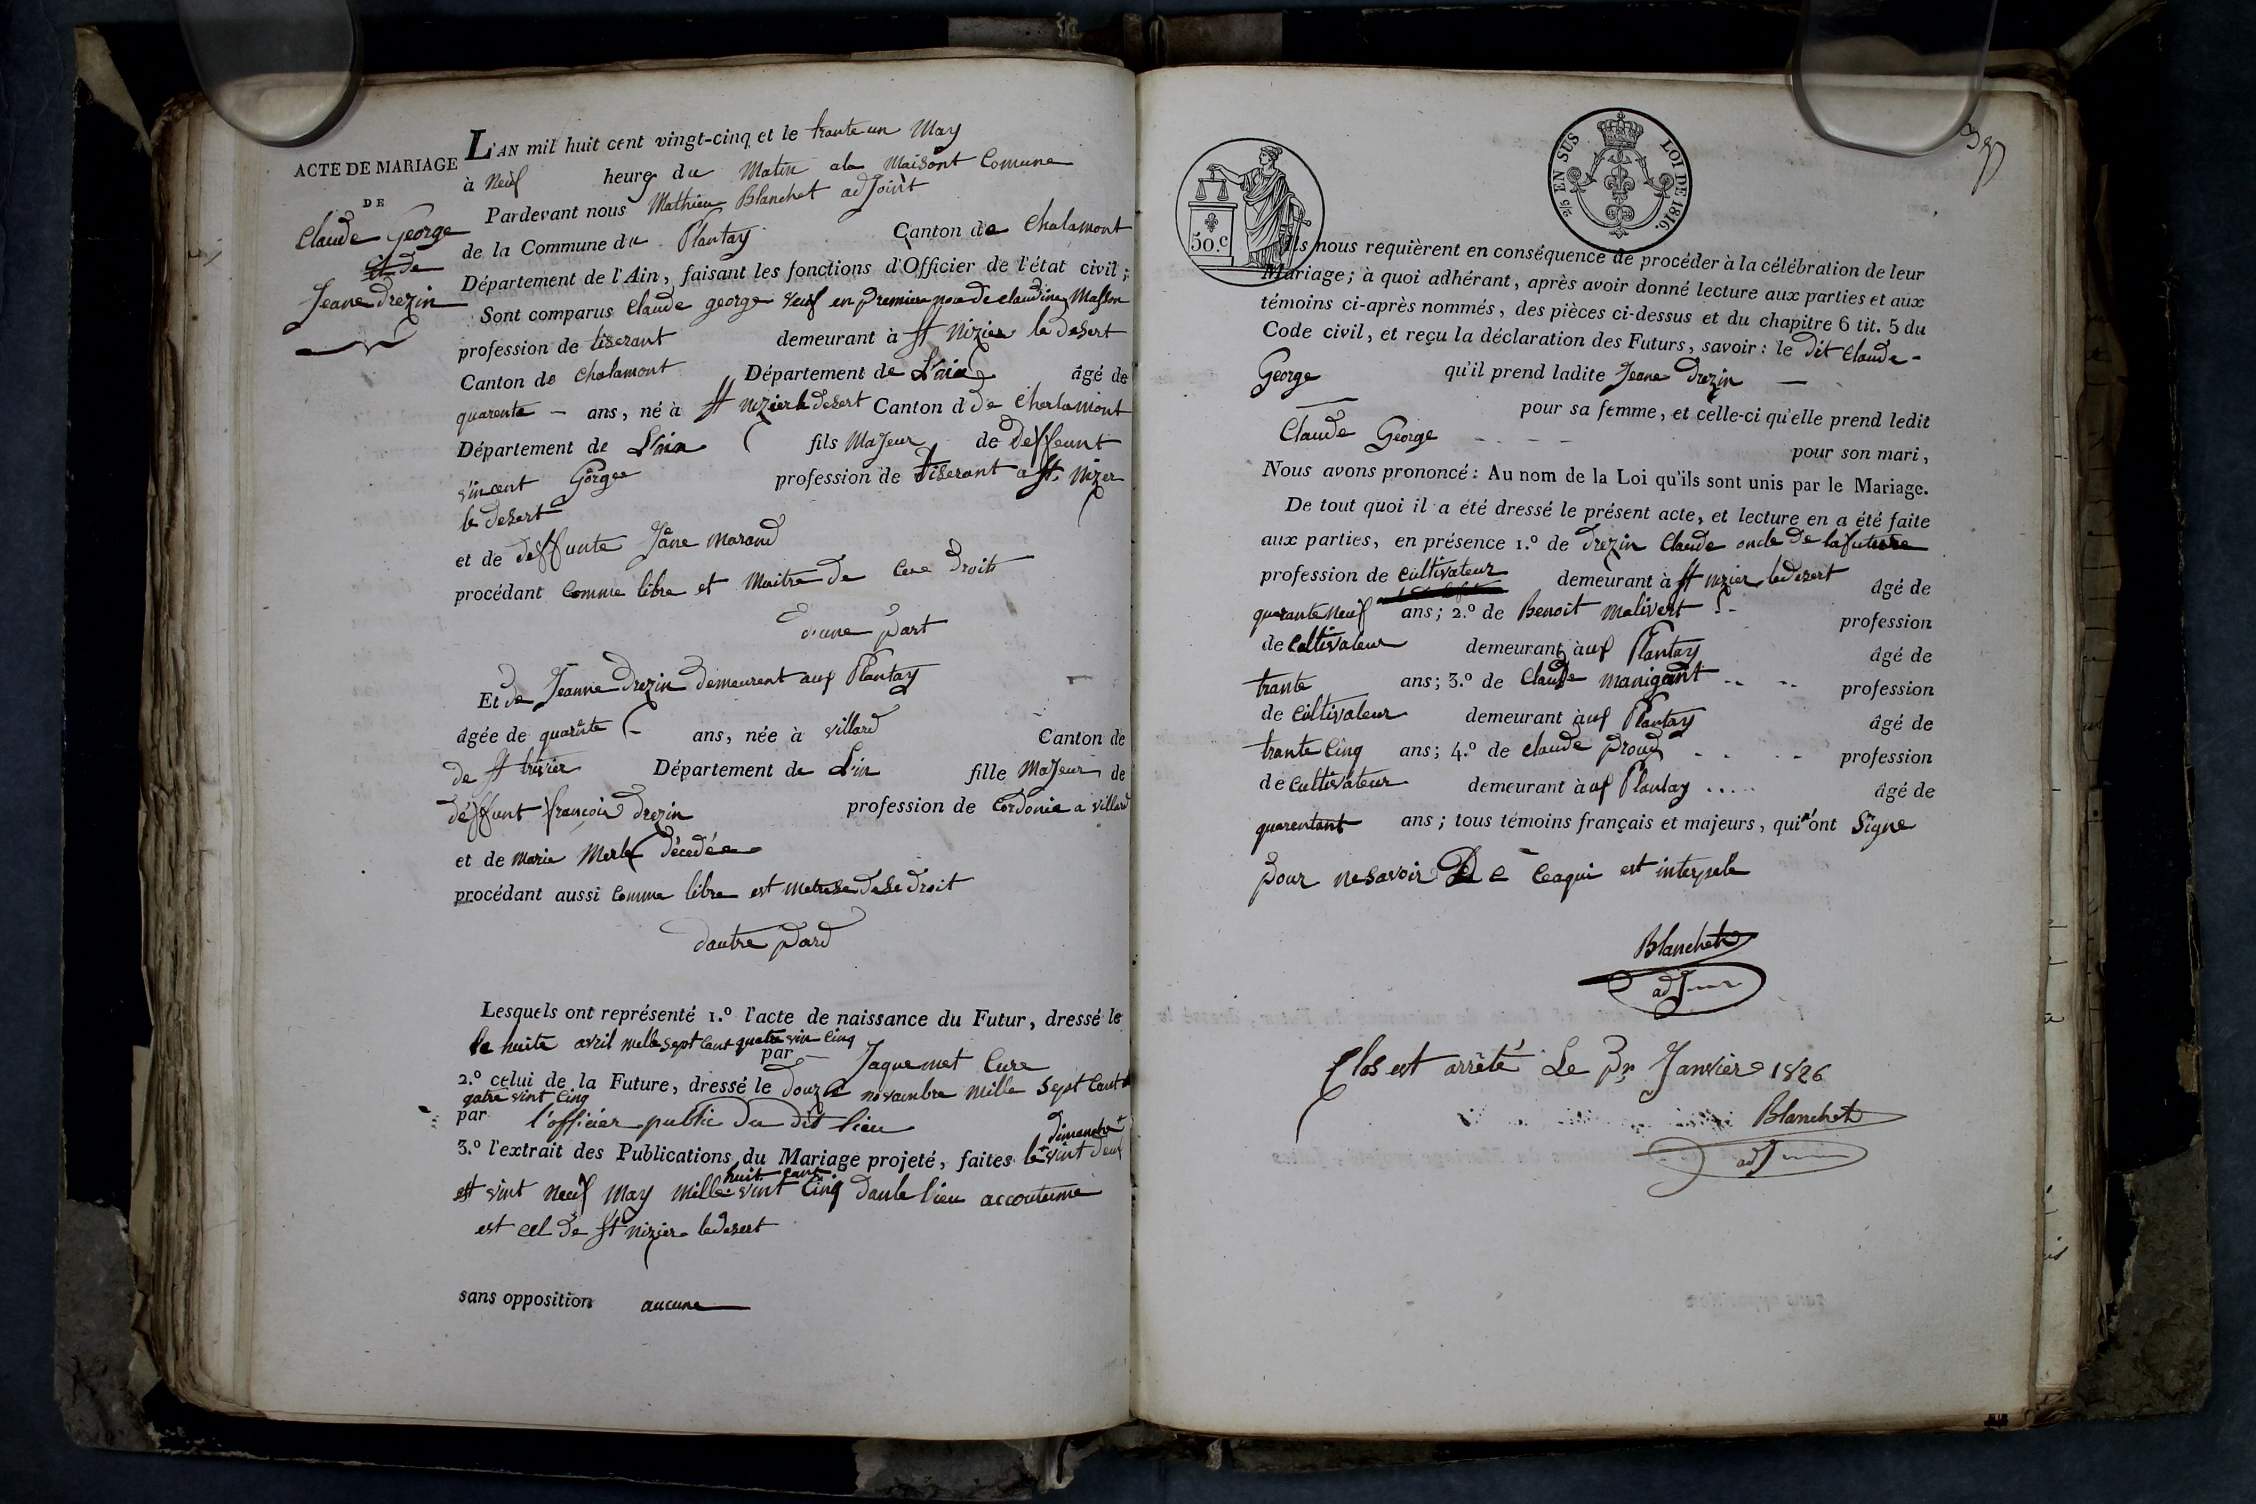 ACTE DE MARIAGE
DE
Claude George
et de
Jeane drezin
L'AN mil huit cent vingt-cinq et le trante un May
à Neuf heures du Matin ala Maisont Comune
Pardevant nous Mathieu Blanchet adJoint
de la Commune du Plantay Canton de Chalamont
Département de l'Ain, faisant les fonctions d'Officier de l'état civil;
Sont comparus Claude george veuf en premiere noce de claudine Masson
profession de tiserant demeurant à st Nizier le desert
Canton de Chalamont Département de L'ain âgé de
quarente - ans, né à st nizier le desert Canton d de Cherlamont
Département de L'ain fils MaJeur de deffeunt
vincent Gorge profession de tiserant a st. Nizer
le desert
et de deffunte Jâne Marand
procédant Comme libre et Maitre de Cese droits
d'une part
Et de Jeanne drezin demeurent aus Plantay
âgée de quarânte ans, née à villard Canton de
de st trivier Département de L'in fille MaJeur de
deffunt françois drezin profession de Cordonie a villard
et de Marie Merle décedée
procédant aussi Comme libre est metrese dese droit
dautre pard
Lesquels ont représenté 1.º l'acte de naissance du Futur, dressé le
le huite avril mille sept Cent quatre vin Cinq
par Jaquemet Cure
2.º celui de la Future, dressé le douze novambre mille sept Cant
qatre vint Cinq
par l'officier public du dit lieu
3.º l'extrait des Publications du Mariage projeté, faites le dimanche vint deux
est vint neuf May mille huit cant vint Cinq dans le lieu accoutumé
est cel de st nizier ledesert
sans opposition aucune
50.c
2/5 EN SUS LOI DE 1816.
Ils nous requièrent en conséquence de procéder à la célébration de leur
Mariage; à quoi adhérant, après avoir donné lecture aux parties et aux
témoins ci-après nommés, des pièces ci-dessus et du chapitre 6 tit. 5 du
Code civil, et reçu la déclaration des Futurs, savoir: le dit Claude -
George qu'il prend ladite Jeane drezin —
pour sa femme, et celle-ci qu'elle prend ledit
Claude George - - - - pour son mari,
Nous avons prononcé: Au nom de la Loi qu'ils sont unis par le Mariage.
De tout quoi il a été dressé le présent acte, et lecture en a été faite
aux parties, en présence 1.º de drezin Claude oncle de la future
profession de Cultivateur demeurant à st nizier ledesert âgé de
quarante neuf ans; 2.º de Benoit Malivert profession
de Caltivateur demeurant àus Plantay âgé de
trante ans; 3.º de Claude manigant profession
de Cultivateur demeurant àus Plantay âgé de
trante Cinq ans; 4.º de claude proud profession
de Cultivateur demeurant à us Plantay ..... âgé de
quarentant ans; tous témoins français et majeurs, qui n'ont Signe
pour nesavoir De Ceaqui est interpele
Blanchet
adJoint
Clos est arrêté Le Pr Janvier 1826
Blanchet
adJoint